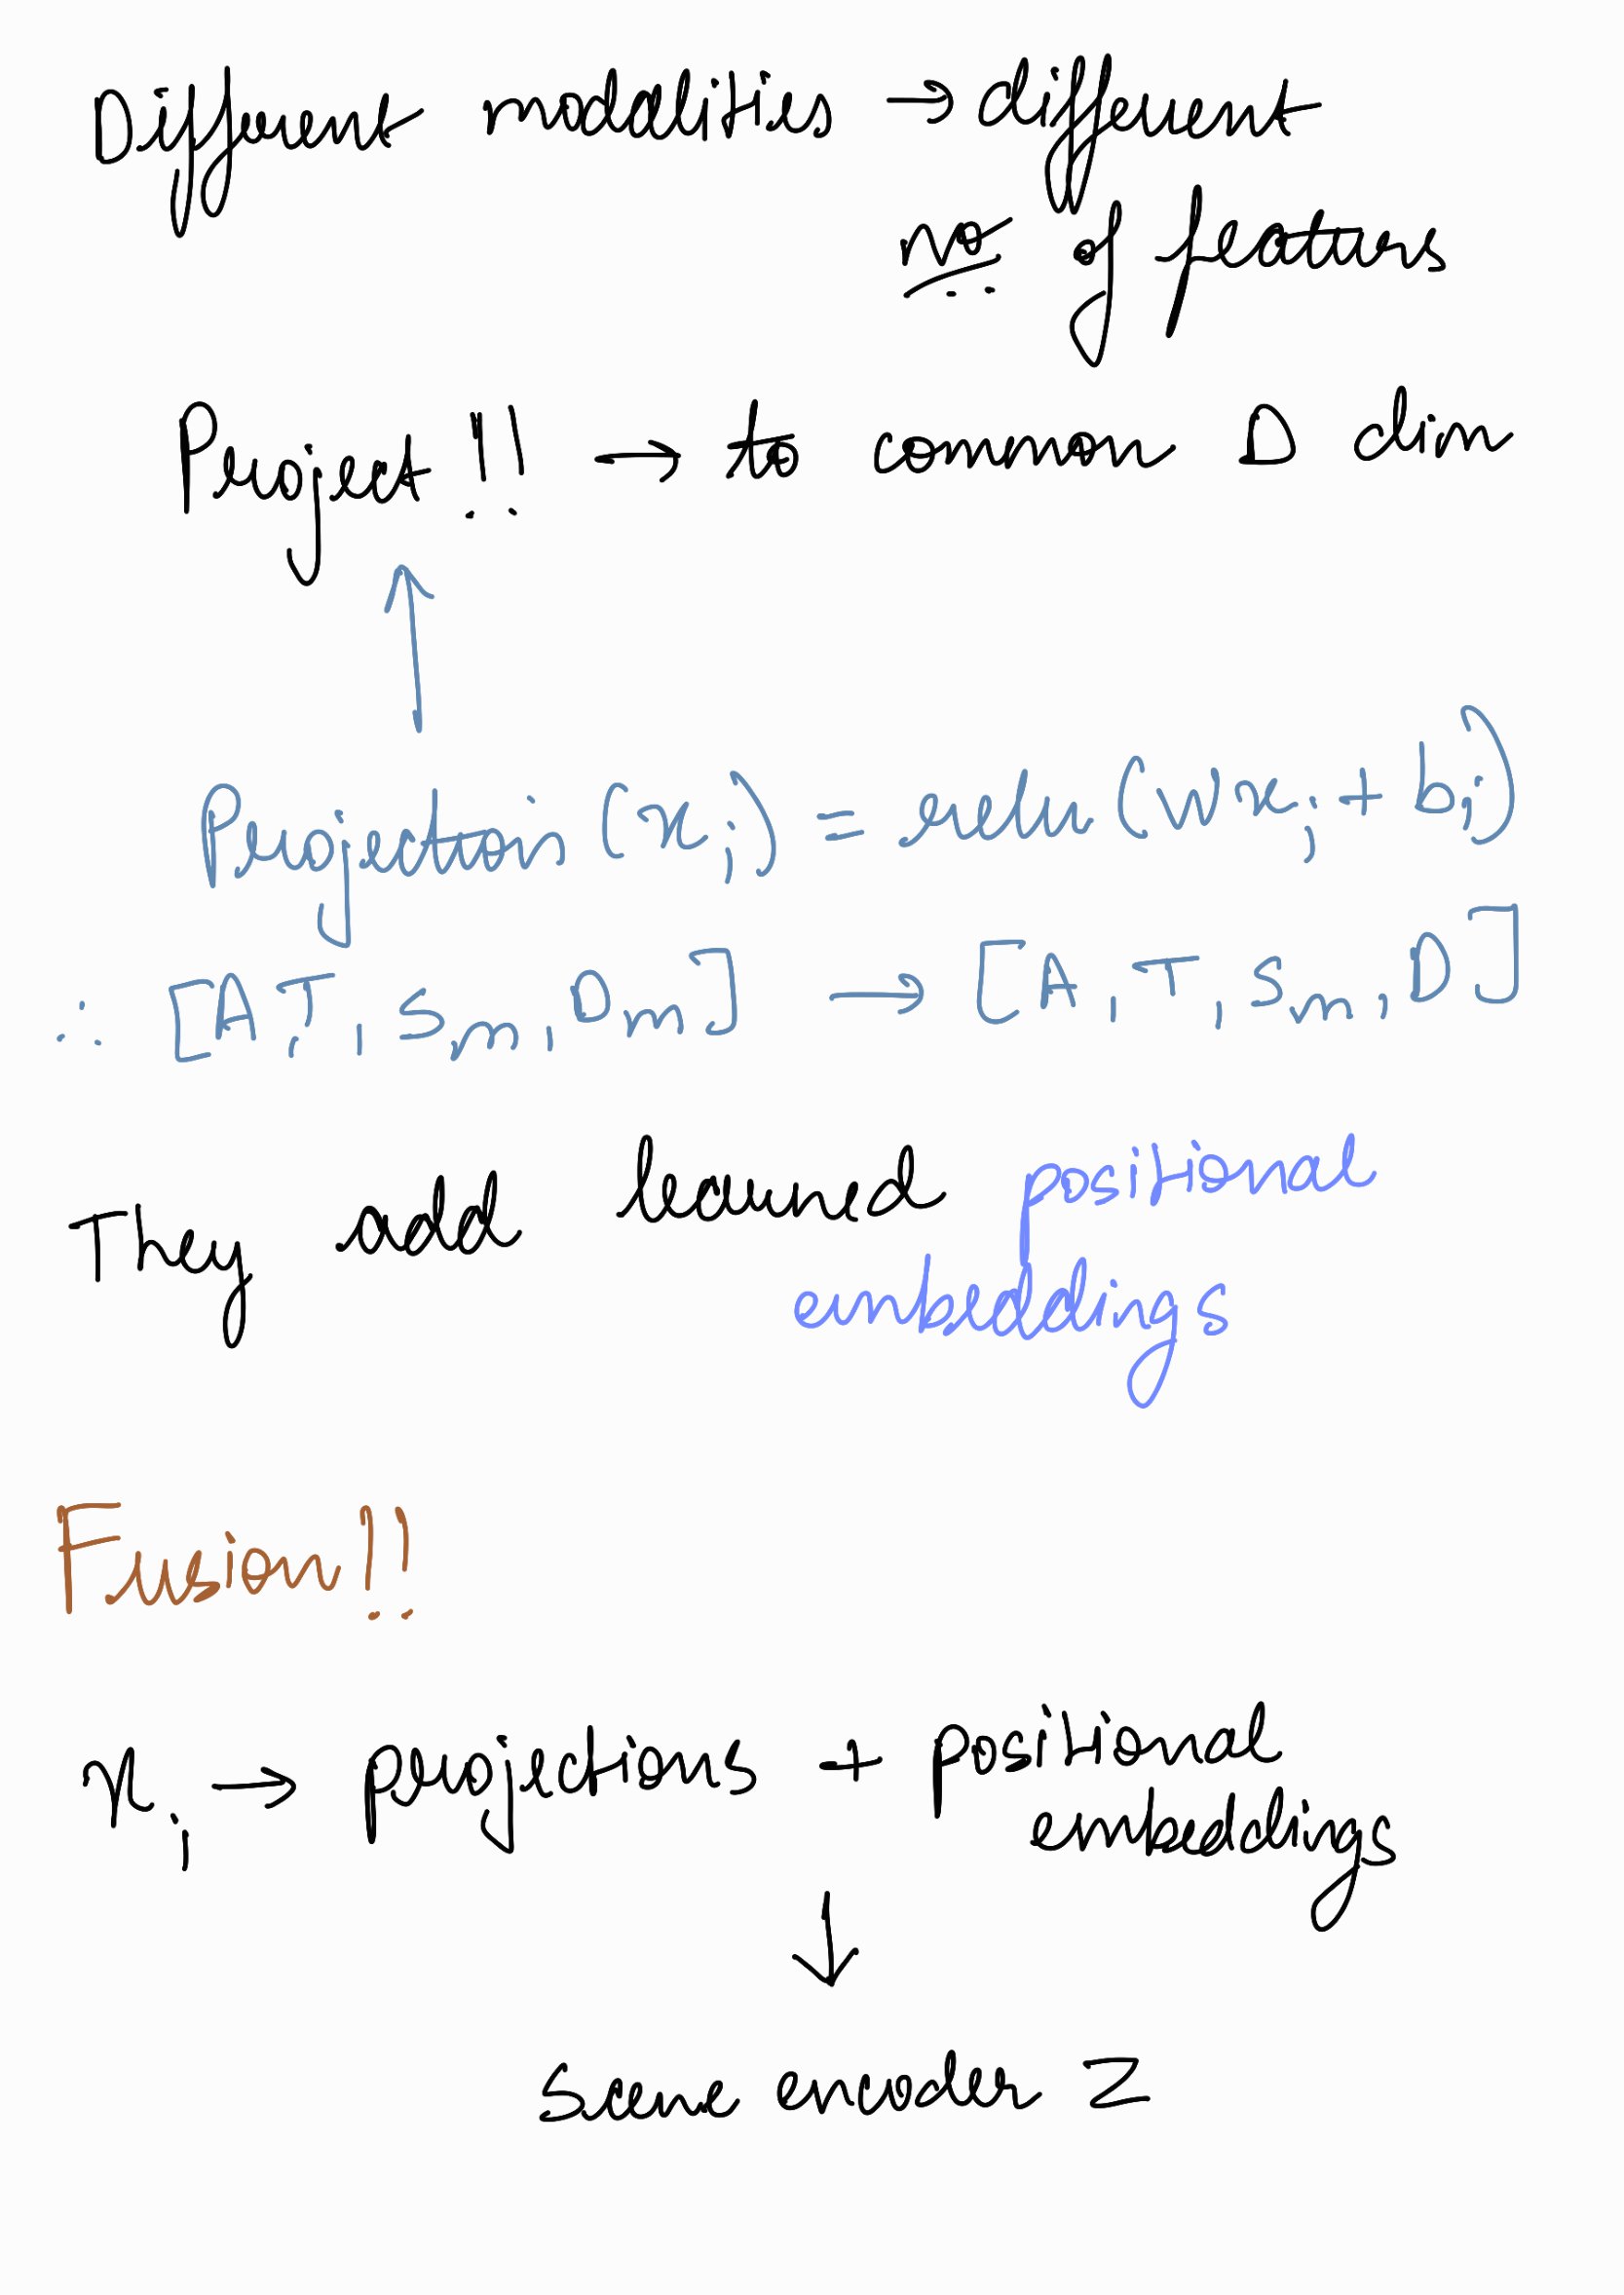 Different modalities → different
no of features
Project!! → to common D dim
↑
Projection (xᵢ) = relu (Wxᵢ + bᵢ)
∴ [A, T, Sₘ, Dₘ] → [A, T, Sₘ, D]
They add learned positional
embeddings
Fusion!!
xᵢ → projections + positional
embeddings
↓
Scene encoder Z